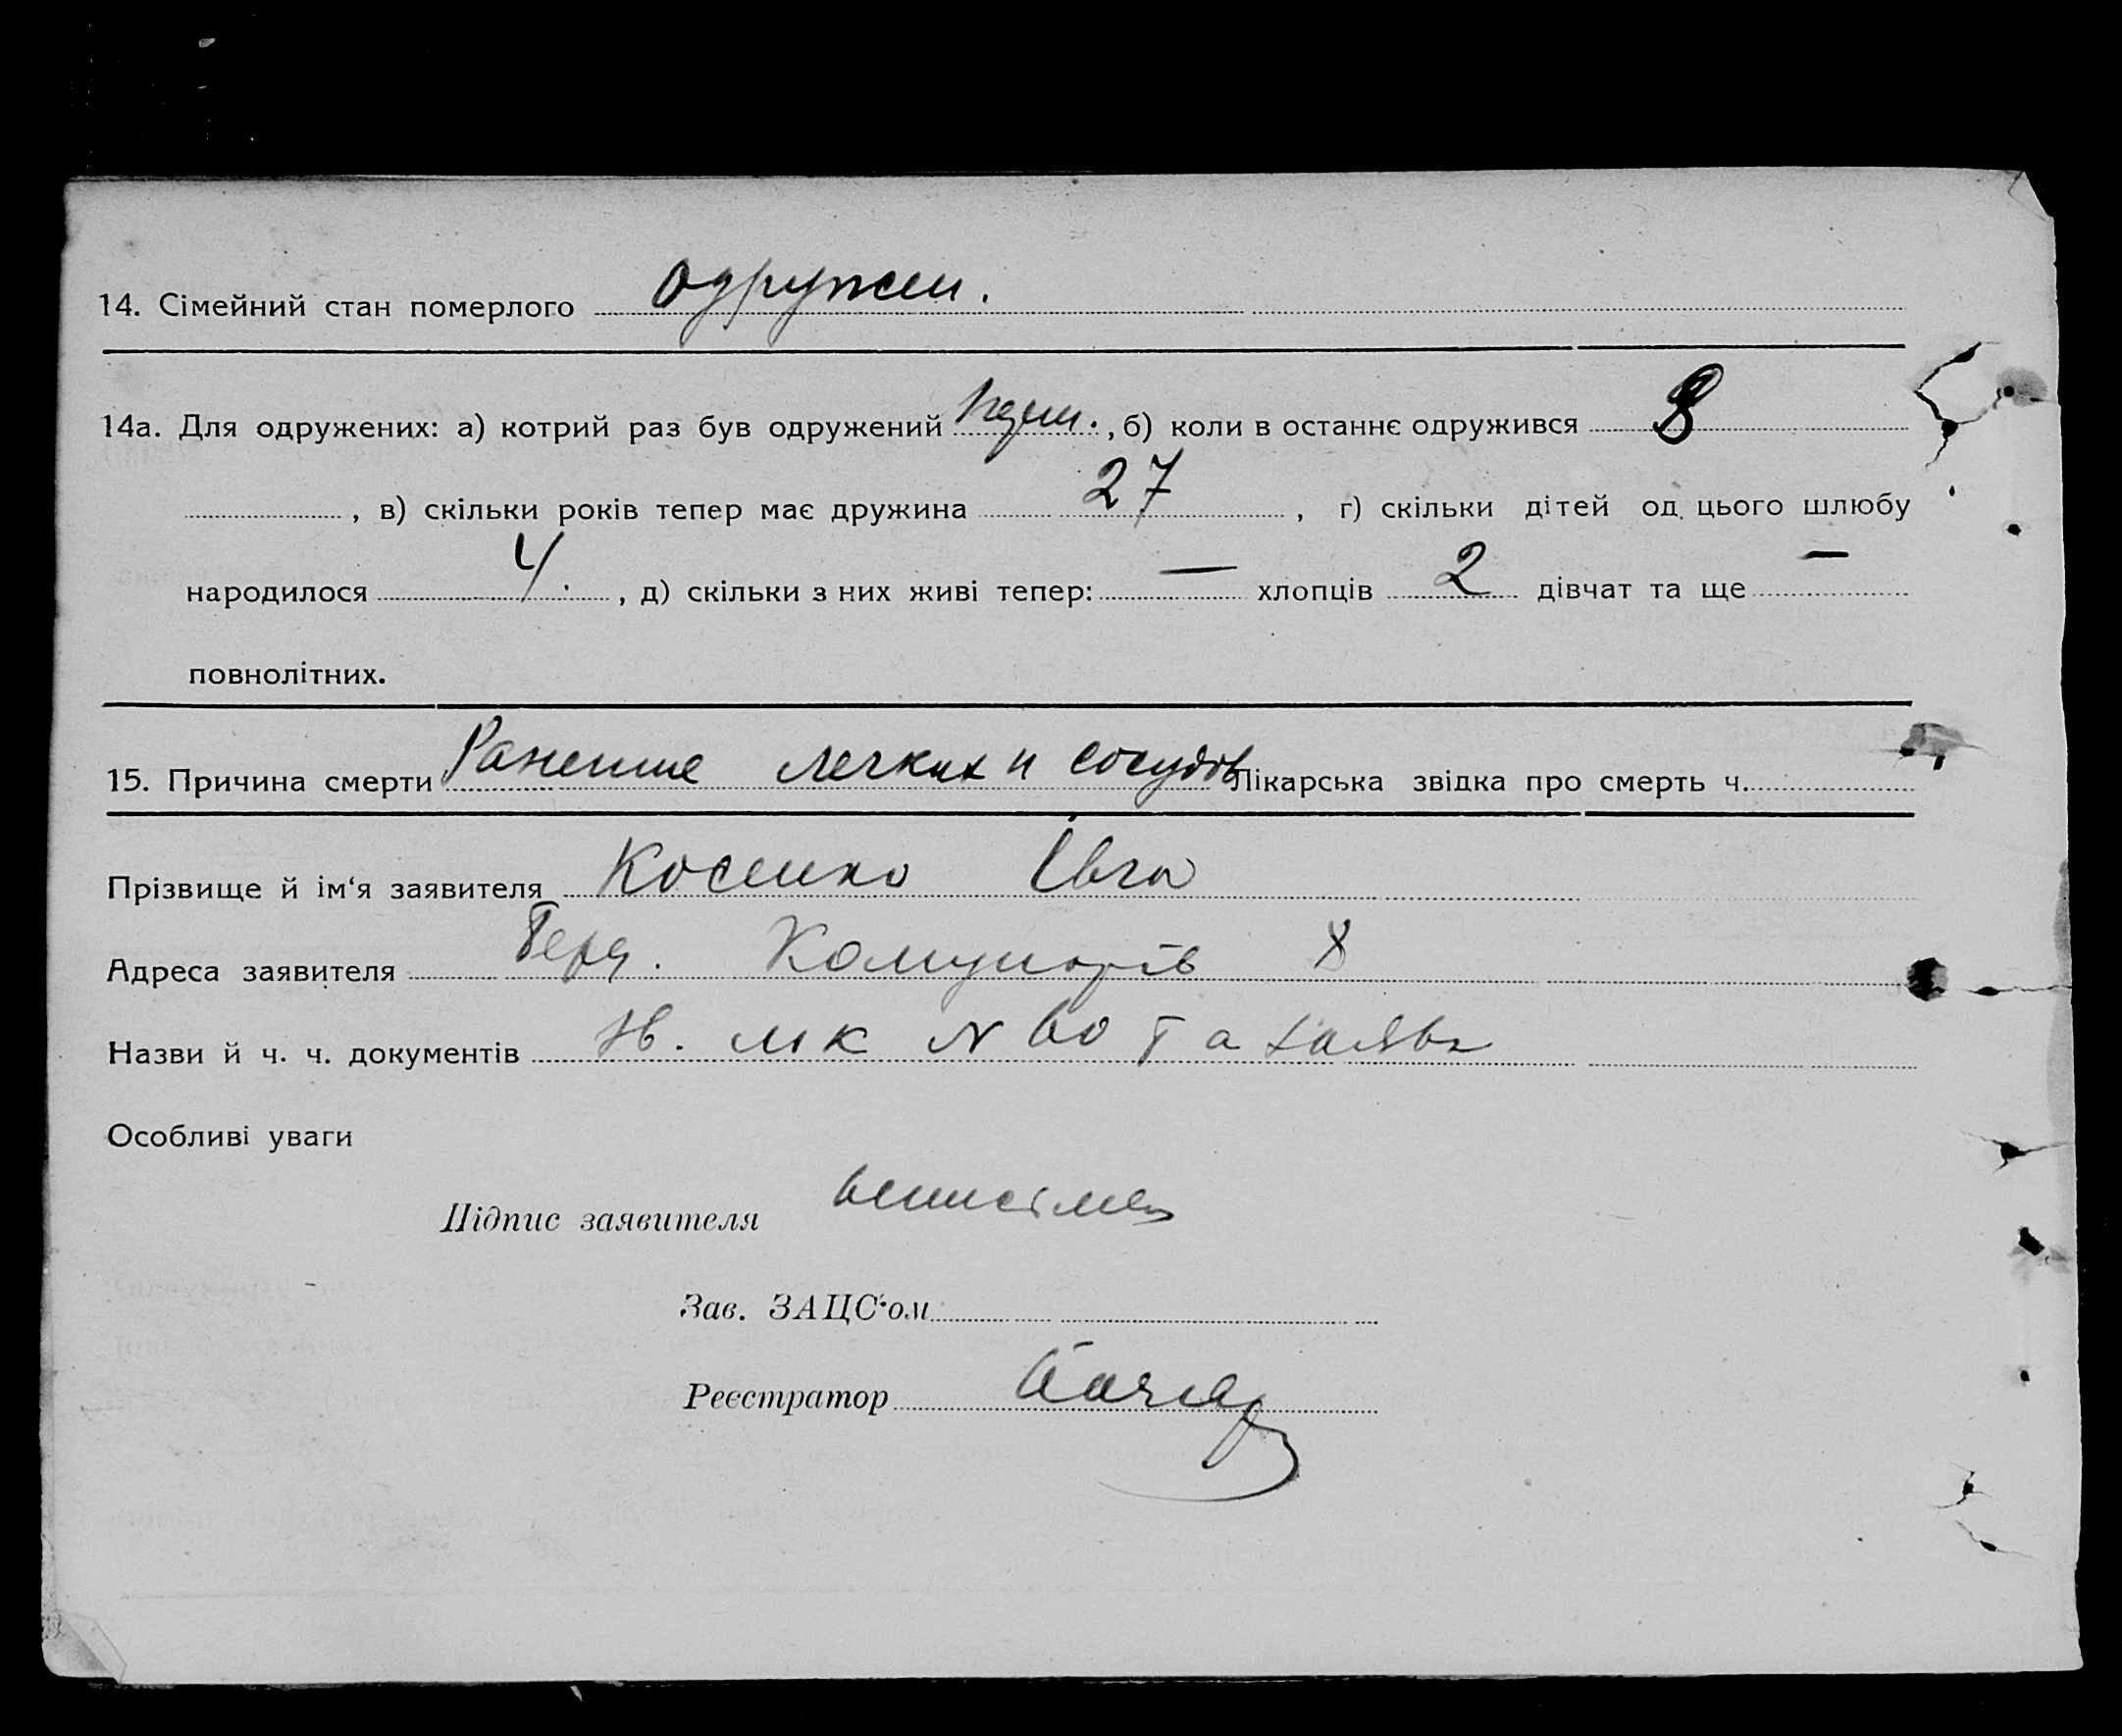 14. Сімейний стан померлого одружен.
14а. Для одружених: а) котрий раз був одружений , б) коли в останнє одружився 8
, в) скільки років тепер має дружина 27 , г) скільки дітей од цього шлюбу
народилося 4. , д) скільки з них живі тепер: — хлопців 2 дівчат та ще —
повнолітних.
15. Причина смерти Ранение легких и сосудов Лікарська звідка про смерть ч.
Прізвище й ім‘я заявителя Косенко Євга
Адреса заявителя Комунарів 8
Назви й ч. ч. документів N 60 та заява
Особливі уваги
Підпис заявителя
Зав. ЗАЦС‘ом
Реєстратор